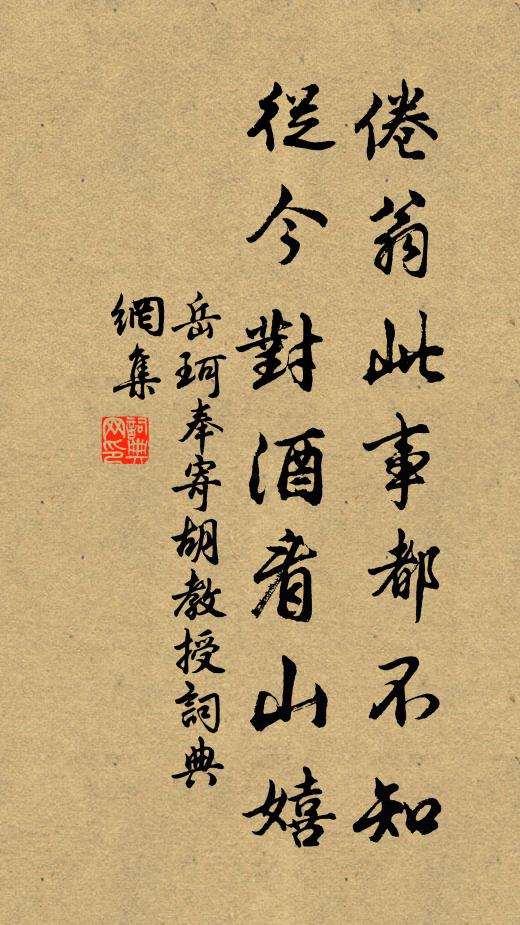 倦翁此事都不知
從今對酒看山嬉
岳珂奉寄胡教授詞典
網集
詞典
网印